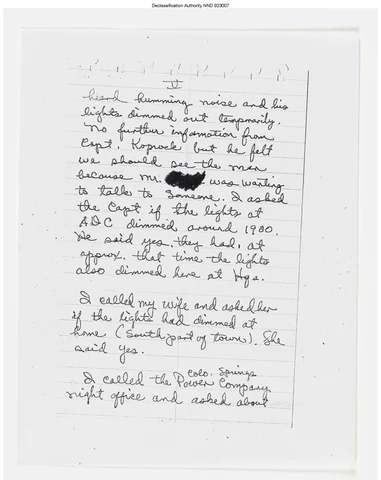 Declassification Authority NND 923007
V
heard humming noise and his
lights dimmed out temporarily.
No further information from
Capt. but he felt
we should see the man
because Mr. was wanting
to talk to someone. I asked
the Capt if the lights at
ADC dimmed around 1900.
He said yes, they had, at
approx. that time the lights
also dimmed here at Hqs.
I called my wife and asked her
if the lights had dimmed at
home (South part of town). She
said yes.
Colo. Springs
I called the Power Company
night office and asked about